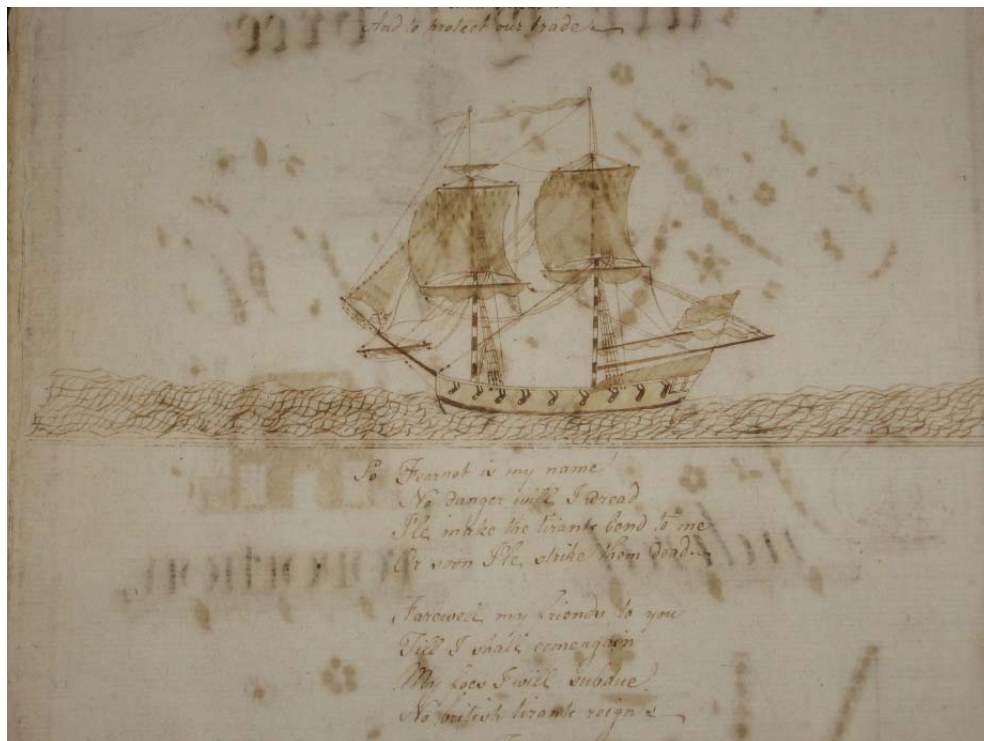 And to protect our trade
So Fearnot is my name
No danger will I dread
I'le make the tirants bend to me
Or soon I'le strike them dead
Farewell my friends to you
Till I shall come again
My foes I will subdue
No british tirants reign